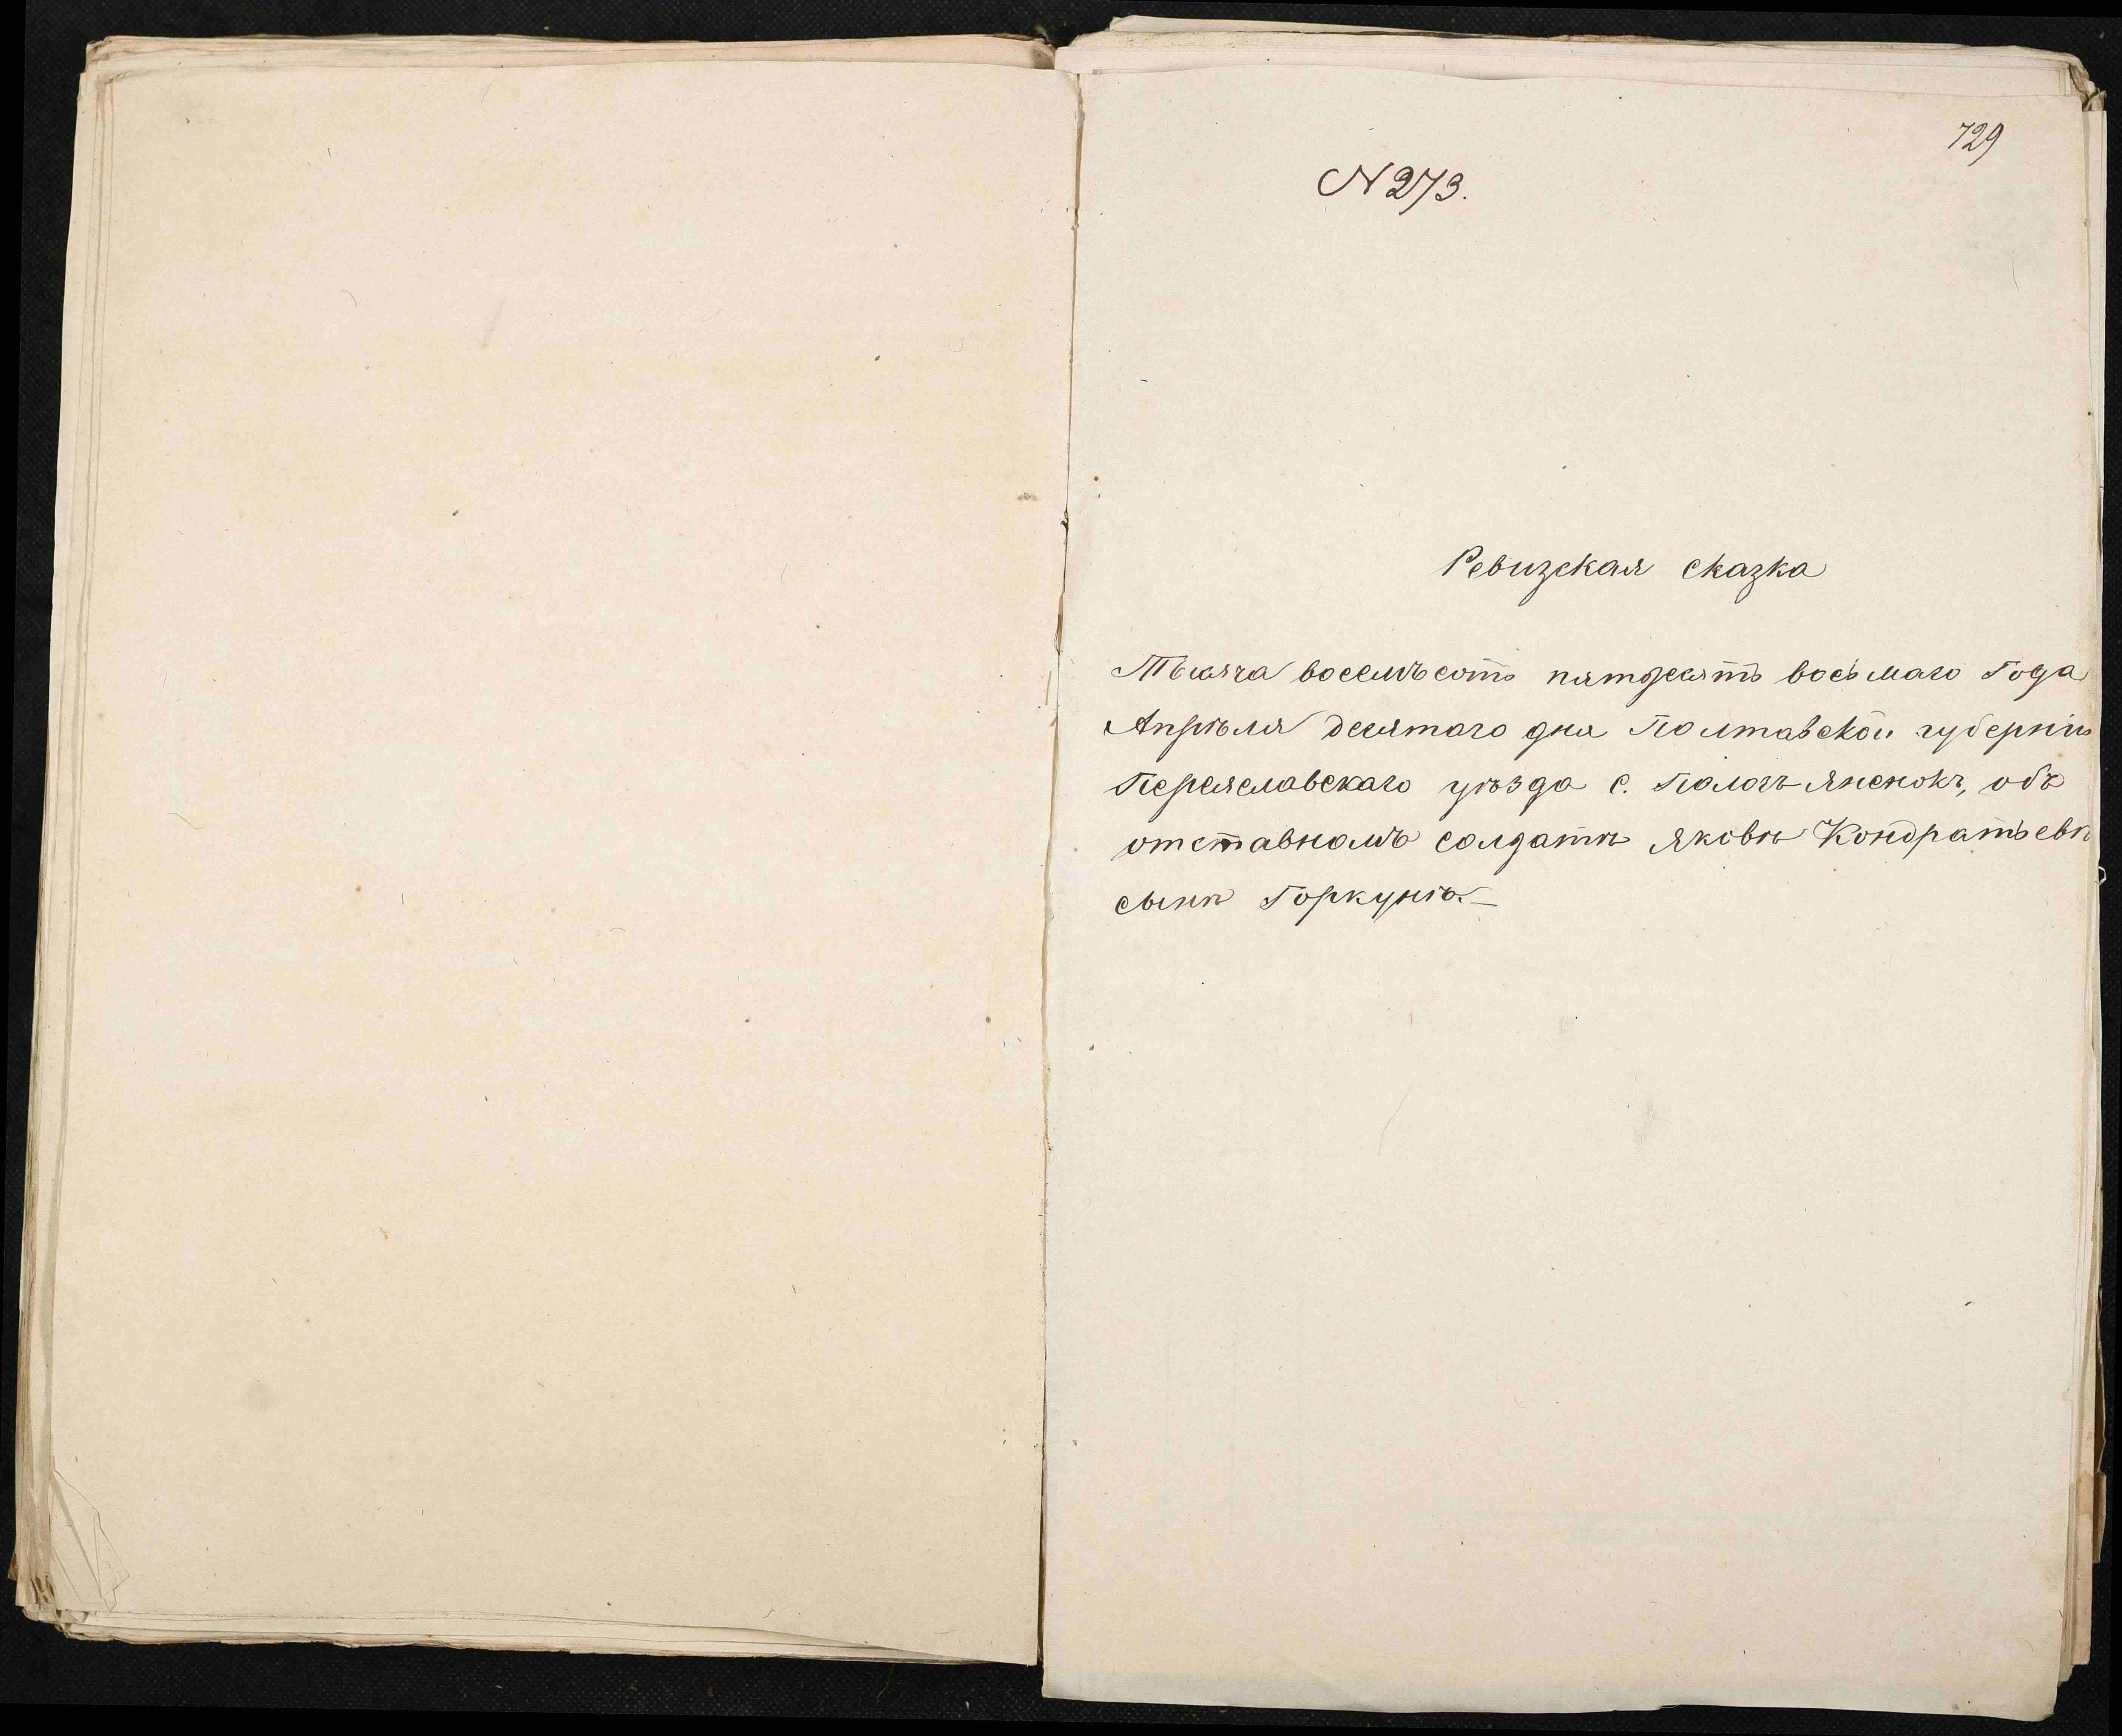 729
N 273.
Ревизская сказка
Тысяча восемьсотъ пятдесятъ восьмаго Года
Апрѣля десятаго дня Полтавской губерніи
Переяславскаго уѣзда с. Помоклянокъ, объ
отставномъ солдатѣ Яковѣ Кондратьевѣ
сынѣ Горкунѣ.—